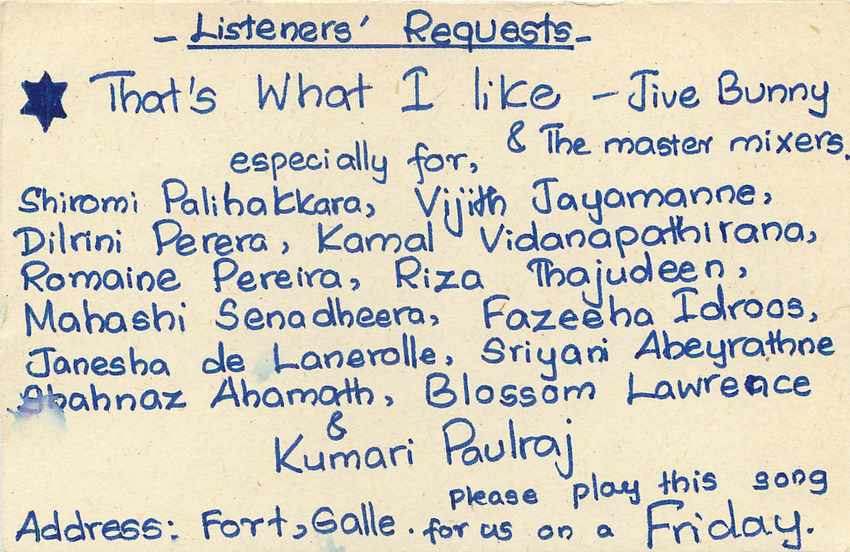 - Listeners' Requests -
That's What I like - Jive Bunny
& The master mixers.
especially for,
Shiromi Palihakkara, Vijith Jayamanne,
Dilrini Perera, Kamal Vidanapathirana,
Romaine Pereira, Riza Thajudeen,
Mahashi Senadheera, Fazeeha Idroos,
Janesha de Lanerolle, Sriyani Abeyrathne
Shahnaz Ahamath, Blossom Lawrence
&
Kumari Paulraj
please play this song
Address: Fort, Galle. for us on a Friday.